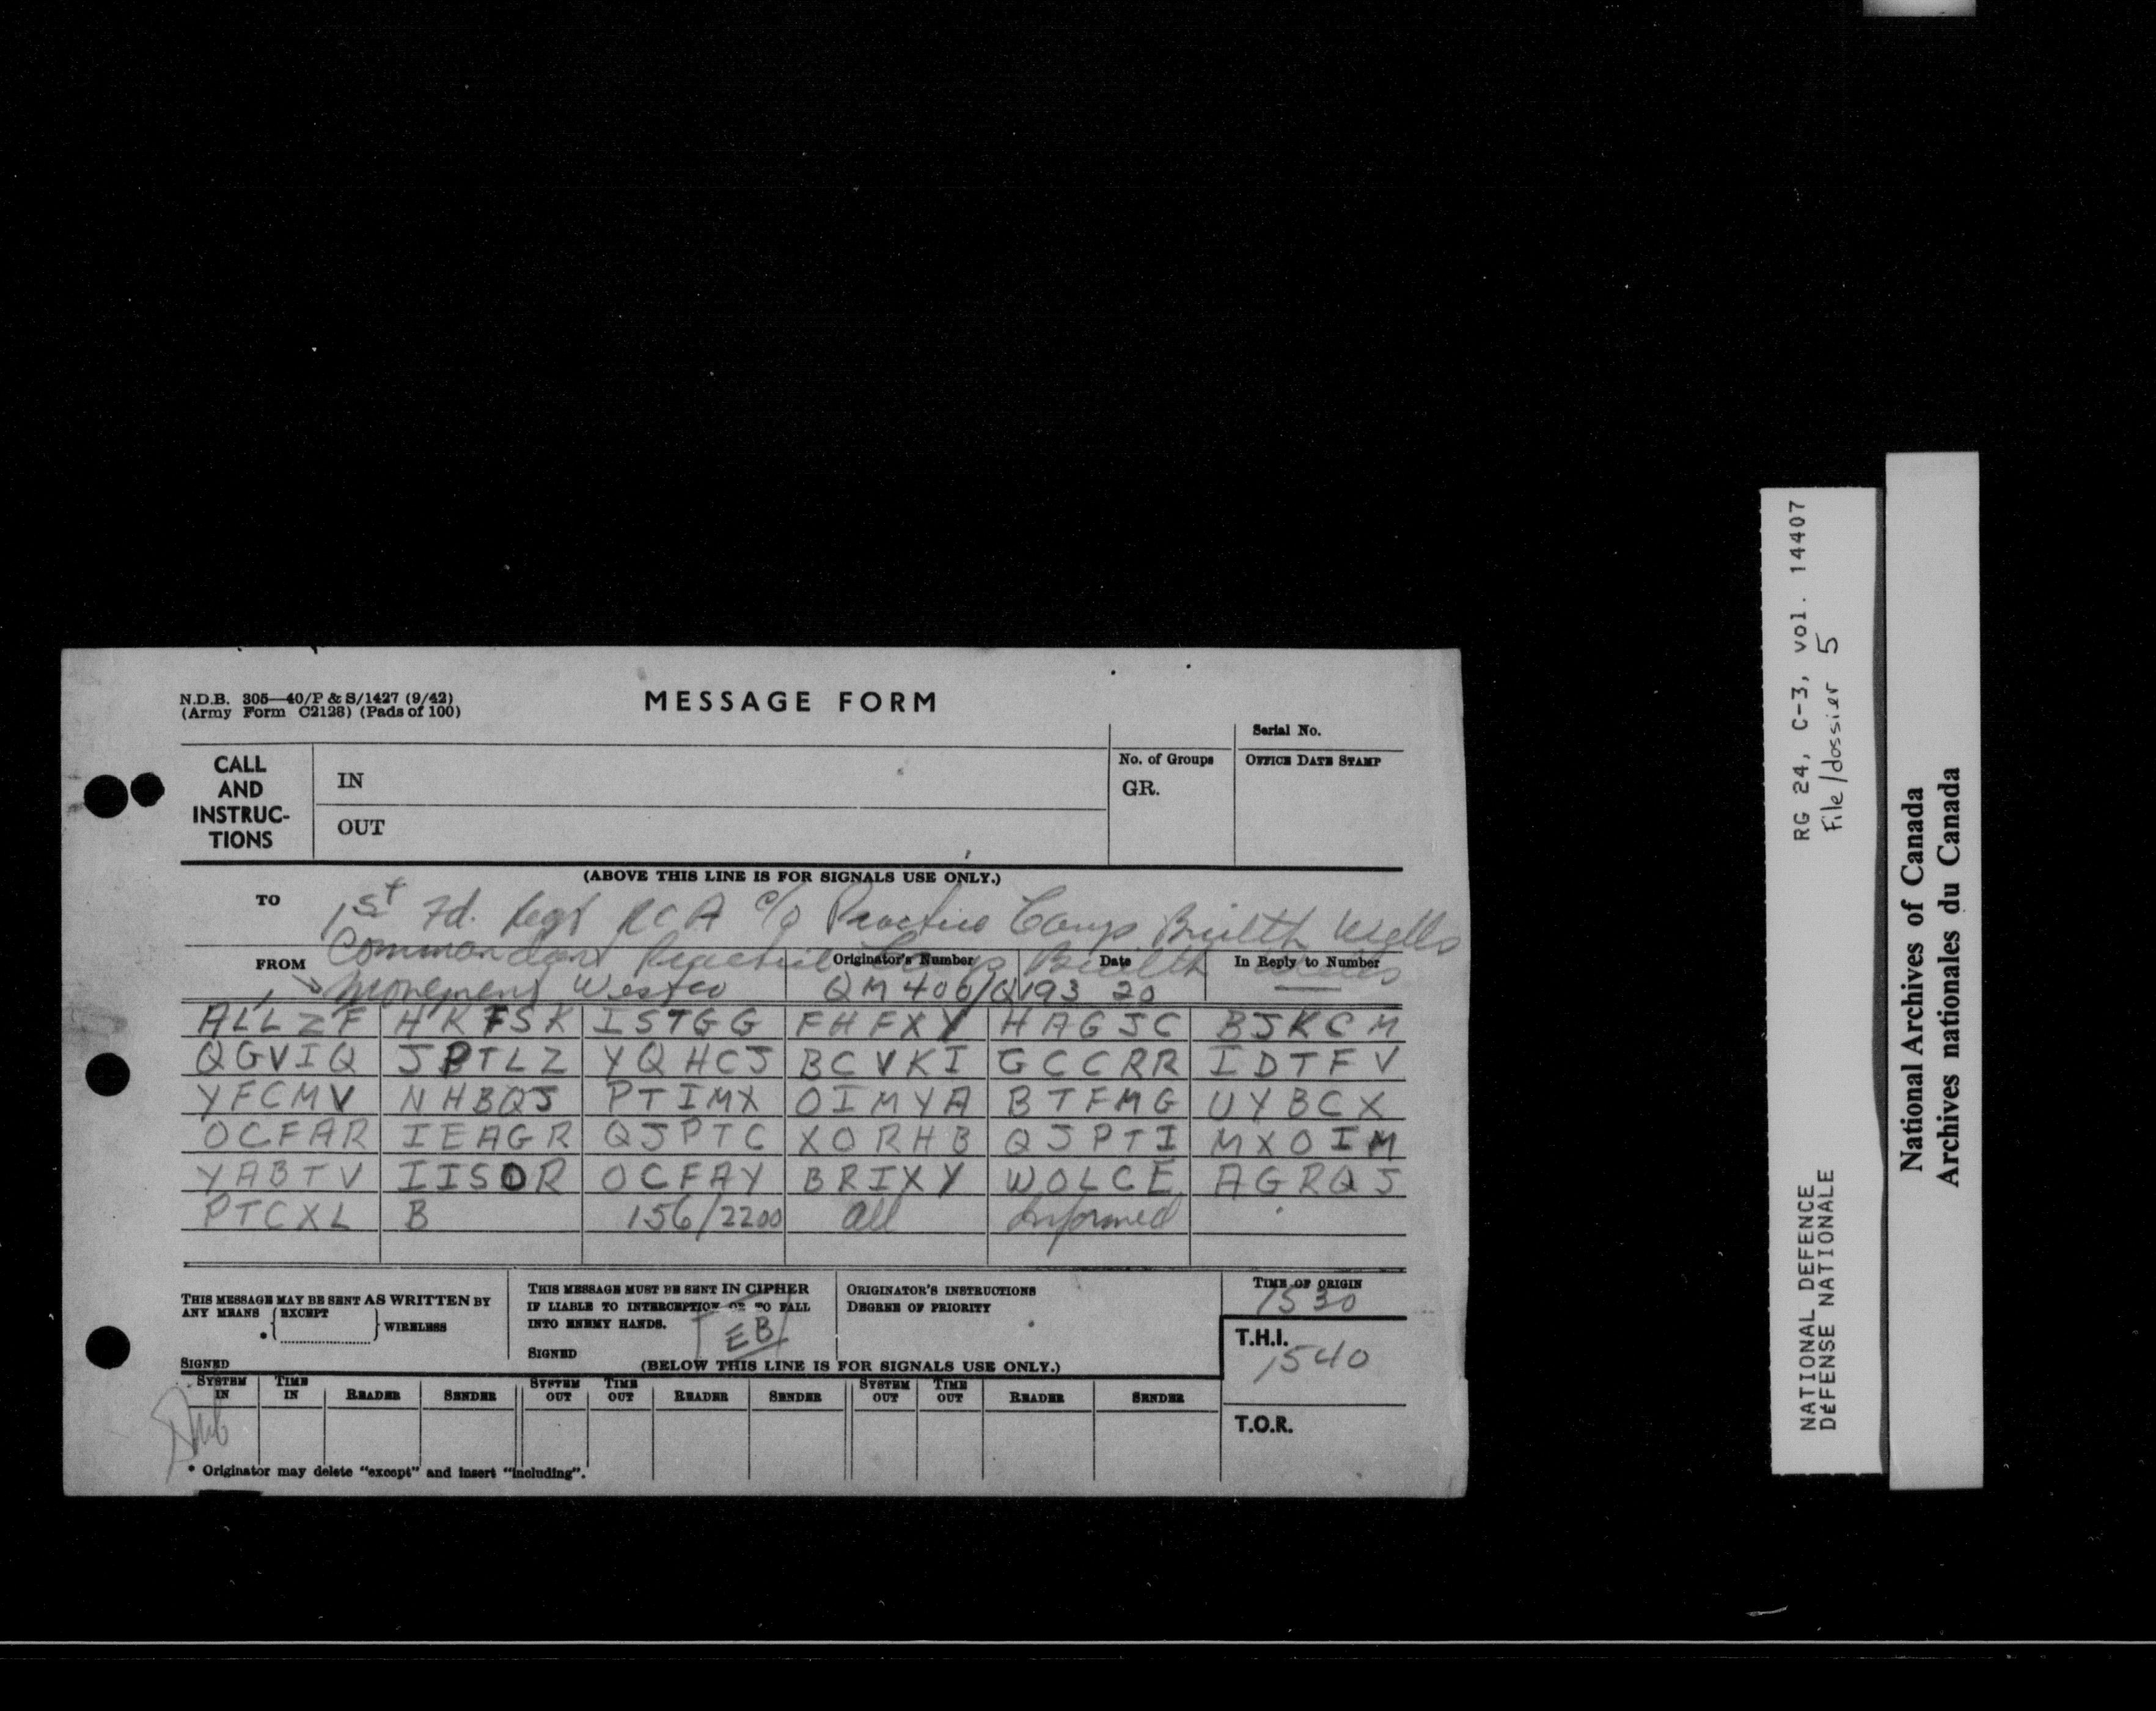 N.D.B. 305—40/P & S/1427 (9/42)
(Army Form C2128) (Pads of 100)
MESSAGE FORM
Serial No.
CALL
AND
INSTRUC-
TIONS
IN
OUT
No. of Groups
GR.
OFFICE DATE STAMP
(ABOVE THIS LINE IS FOR SIGNALS USE ONLY.)
TO 1st Fd. Regt RCA c/o Practice Camp Builth Wells
Commandant Practice Camp Builth Wells
FROM Movement Wesco
Originator's Number QM 406/Q193
Date 20
In Reply to Number —
ALLZF HKFSK ISTGG FHFXY HAGJC BJKCM
QGVIQ JPTLZ YQHCJ BCVKI GCCRR IDTFV
YFCMV NHBQJ PTIMX OIMYA BTFMG UYBCX
OCFAR IEAGR QJPTC XORHB QJPTI MXOIM
YABTV IISOR OCFAY BRIXY WOLCE AGRQJ
PTCXL B 156/2200 All Informed .
THIS MESSAGE MAY BE SENT AS WRITTEN BY
ANY MEANS { EXCEPT } WIRELESS
*
SIGNED
THIS MESSAGE MUST BE SENT IN CIPHER
IF LIABLE TO INTERCEPTION OR TO FALL
INTO ENEMY HANDS.
EB
SIGNED
ORIGINATOR'S INSTRUCTIONS
DEGREE OF PRIORITY
TIME OF ORIGIN
1530
T.H.I.
1540
T.O.R.
(BELOW THIS LINE IS FOR SIGNALS USE ONLY.)
SYSTEM IN TIME IN READER SENDER SYSTEM OUT TIME OUT READER SENDER SYSTEM OUT TIME OUT READER SENDER
* Originator may delete "except" and insert "including".
RG 24, C-3, vol. 14407
File/dossier 5
NATIONAL DEFENCE
DÉFENSE NATIONALE
National Archives of Canada
Archives nationales du Canada